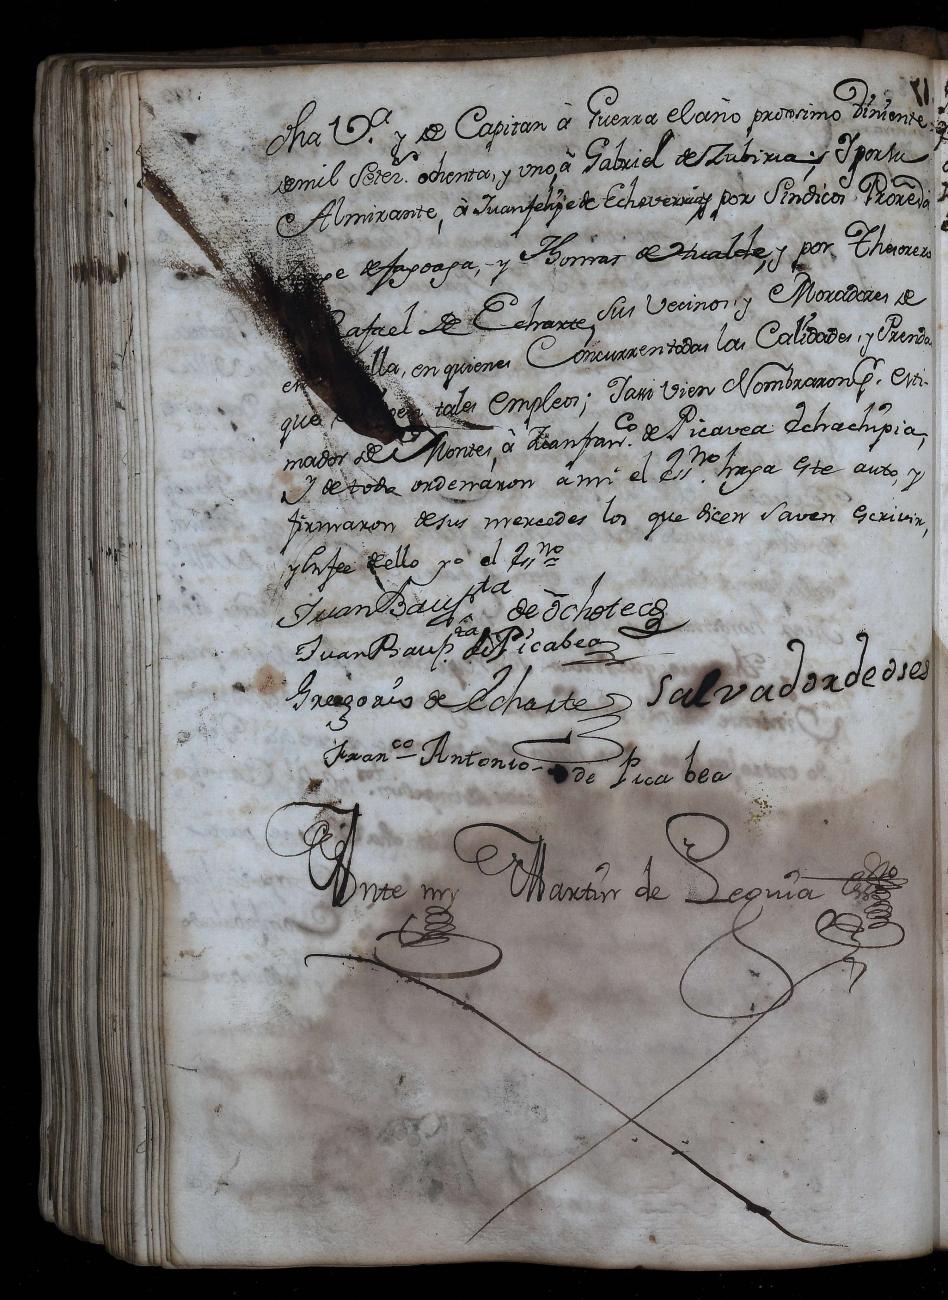 dha V.ª y de Capitan à Guerra el año proximo Viniente
de mil Setez. ochenta, y uno, à Gabriel de Zubiria; Y por su
Almirante, à Juan phelipe de Echeverria, y por Sindicos
de fagoaga, y Thomas de y por Thesorero
Rafael de Echarte, sus Vecinos, y Moradores de
lla, en quienes Concurren todas las Calidades, y Prendas
que tales empleos; Y assi vien Nombraron p.r Esti-
mador de Montes, à Juan fran.co de Picavea Echachipia,
Y de todo ordenaron a mi el Ess.no haga este auto, y
firmaron de sus mercedes los que dicen saven escrivir,
y en fee de ello yo el Ess.no
Juan Baupsta de Ochoteco
Juan Baup.ta de Picabea
Gregorio de Echarte Salvador de oses
Fran.co Antonio de Picabea
Ante my Martin de Seguia